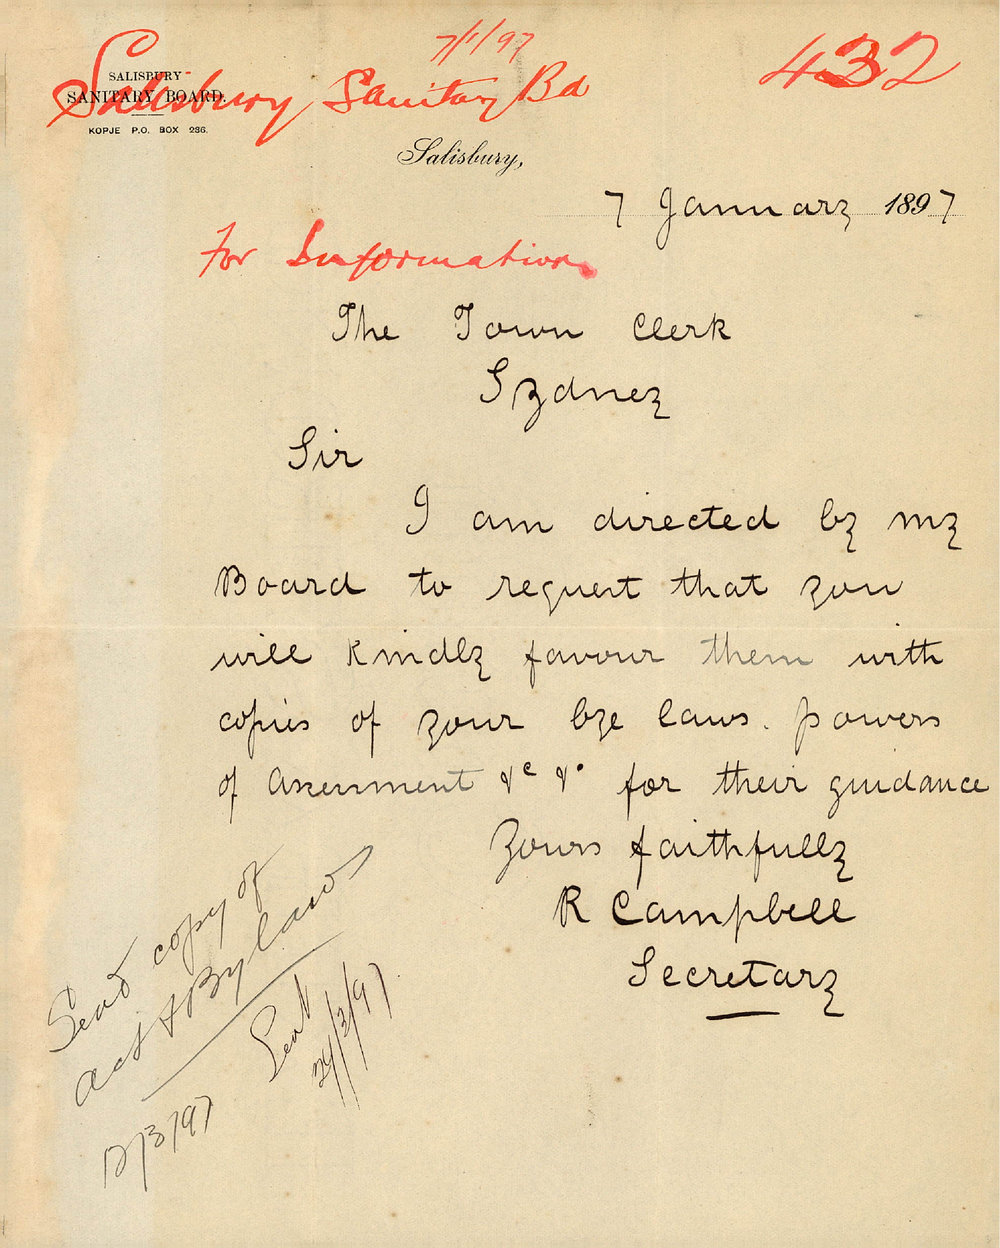 7/1/97
432
Salisbury Sanitary Bd
SALISBURY
SANITARY BOARD.
KOPJE P.O. BOX 286.
Salisbury,
7 January 1897
For Information
The Town Clerk
Sydney
Sir
I am directed by my
Board to request that you
will kindly favour them with
copies of your bye laws. powers
of Assessment &c &c for their guidance
Yours faithfully
R Campbell
Secretary
Send copy of
act & Bylaws
12/3/97
Sent
24/3/97